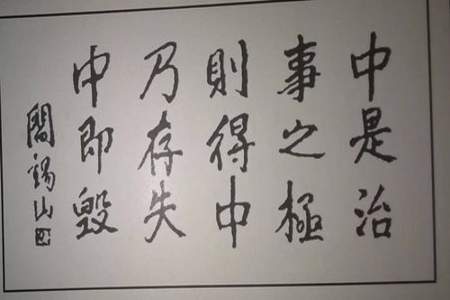 中是治
事之極
則得中
乃存失
中即毀
閻錫山